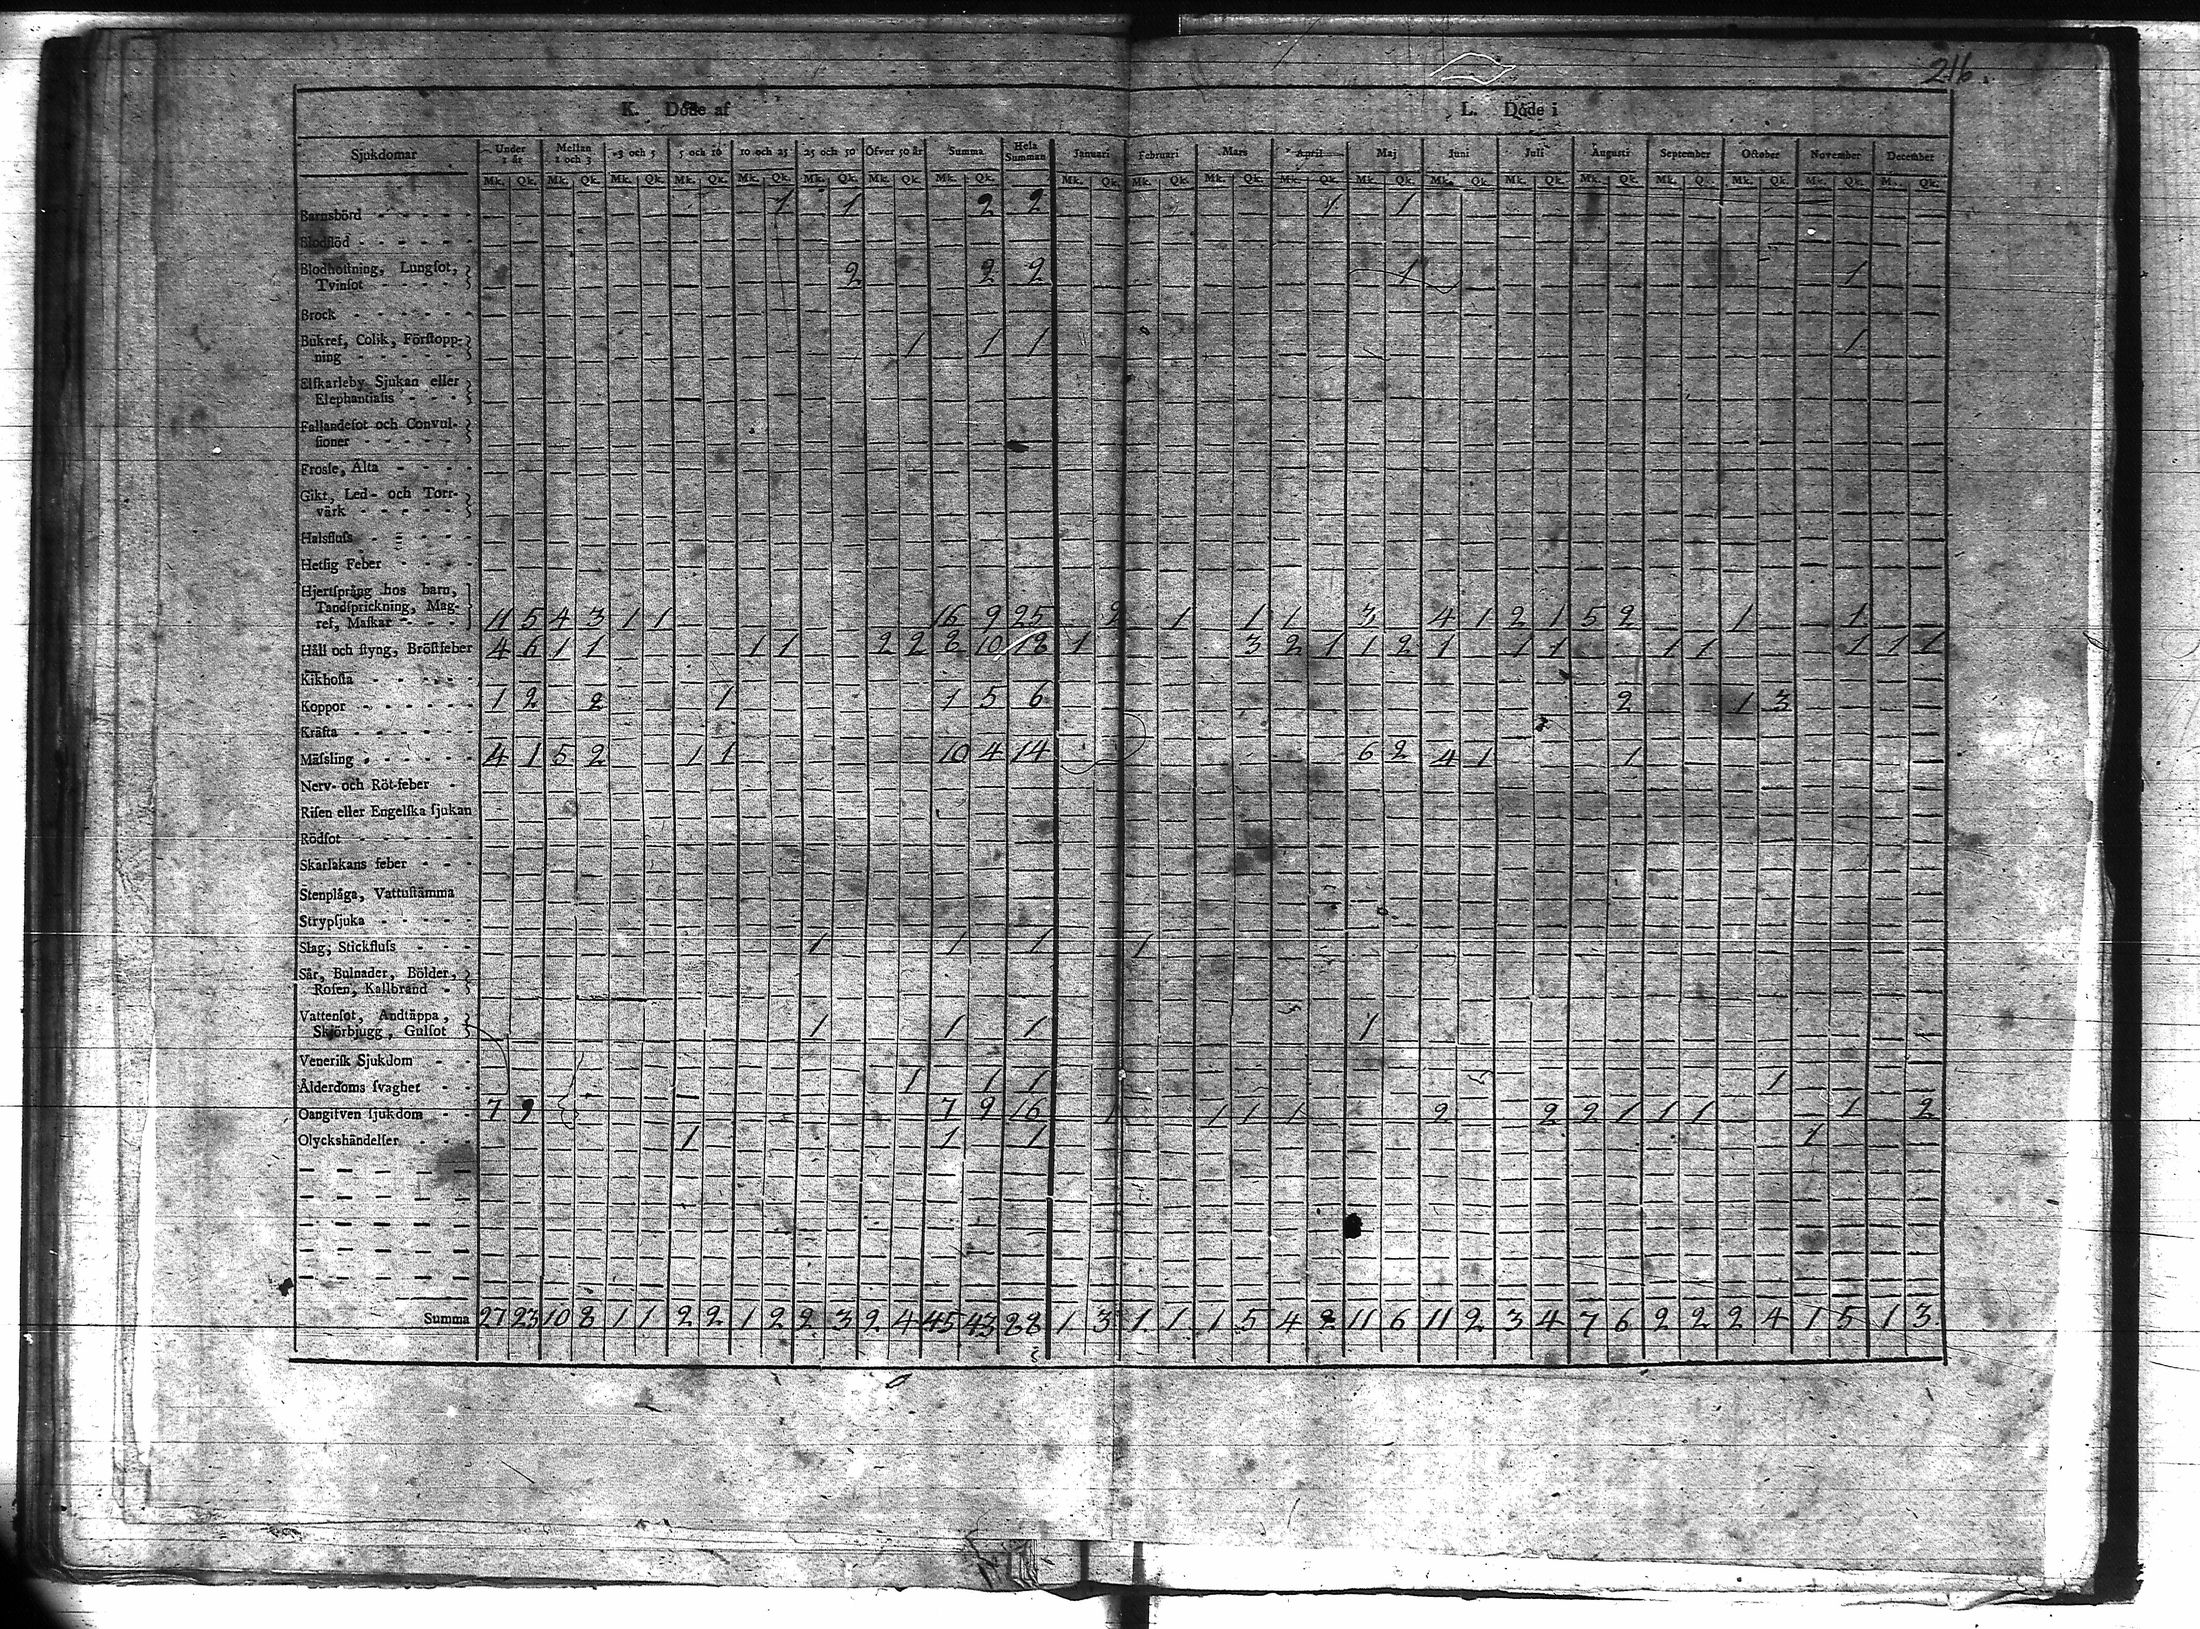 216.
K. Döde af L. Döde i
Sjukdomar Under 1 år Mellan 1 och 3 3 och 5 5 och 10 10 och 25 25 och 50 Öfver 50 år Summa Hela Summan Januari Februari Mars April Maj Juni Juli Augusti September October November December
Mk. Qk. Mk. Qk. Mk. Qk. Mk. Qk. Mk. Qk. Mk. Qk. Mk. Qk. Mk. Qk. Mk. Qk. Mk. Qk. Mk. Qk. Mk. Qk. Mk. Qk. Mk. Qk. Mk. Qk. Mk. Qk. Mk. Qk. Mk. Qk. Mk. Qk. M. Qk.
Barnsbörd 1 1 2 2 1 1
Blodflöd
Blodhoſtning, Lungſot,
Tvinſot 2 2 2 1 1
Brock
Bukref, Colik, Förſtopp-
ning 1 1 1 1
Elſkarleby Sjukan eller
Elephantiaſis
Fallandeſot och Convul-
ſioner
Froſſe, Älta
Gikt, Led- och Torr-
värk
Halsfluſs
Hetſig Feber
Hjertſprång hos barn,
Tandſprickning, Mag-
ref, Maſkar 11 5 4 3 1 1 16 9 25 2 1 1 1 3 4 1 2 1 5 2 1 1
Håll och ſtyng, Bröſtfeber 4 6 1 1 1 1 2 2 8 10 18 1 3 2 1 1 2 1 1 1 1 1 1 1 1
Kikhoſta
Koppor 1 2 2 1 1 5 6 2 1 3
Kräfta
Mäſsling 4 1 5 2 1 1 10 4 14 6 2 4 1 1
Nerv- och Röt-feber
Riſen eller Engelſka ſjukan
Rödſot
Skarlakans feber
Stenplåga, Vattuſtämma
Strypſjuka
Slag, Stickfluſs 1 1 1 1
Sår, Bulnader, Bölder,
Roſen, Kallbrand
Vattenſot, Andtäppa,
Skjörbjugg, Gulſot 1 1 1 1
Veneriſk Sjukdom
Ålderdoms ſvaghet 1 1 1 1
Oangifven ſjukdom 7 9 7 9 16 1 1 1 1 2 2 2 1 1 1 1 2
Olyckshändelſer 1 1 1 1
Summa 27 23 10 8 1 1 2 2 1 2 2 3 2 4 45 43 88 1 3 1 1 1 5 4 2 11 6 11 2 3 4 7 6 2 2 2 4 1 5 1 3